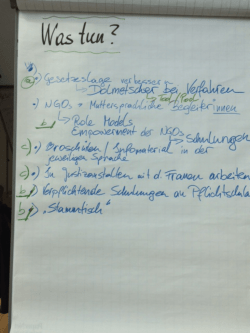 Was tun?
a) •) Gesetzeslage verbessern
↳ Dolmetscher bei Verfahren
•) NGOs + Muttersprachliche Begleiterinnen
b) ↳ Role Models
Empowerment der NGOs ↳ Schulungen
c) •) Broschüren / Infomaterial in der
jeweiligen Sprache
c) •) In Justizanstalten mit d. Frauen arbeiten
b) •) Verpflichtende Schulungen an
b) •) "Stammtisch"